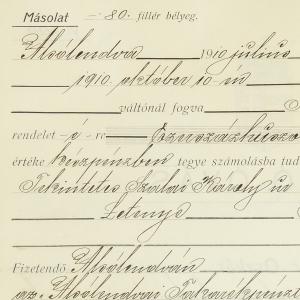 Másolat — 80.— fillér bélyeg.
Alsólendva 1910 július
1910. október 10-én
váltónál fogva
rendelet — á — re Ezerszázhúsz
értéke készpénzben tegye számolásba tud
Tekintetes Szalai Károly úr
Letenye
Fizetendő Alsólendván
az Alsólendvai Takarékpénzt